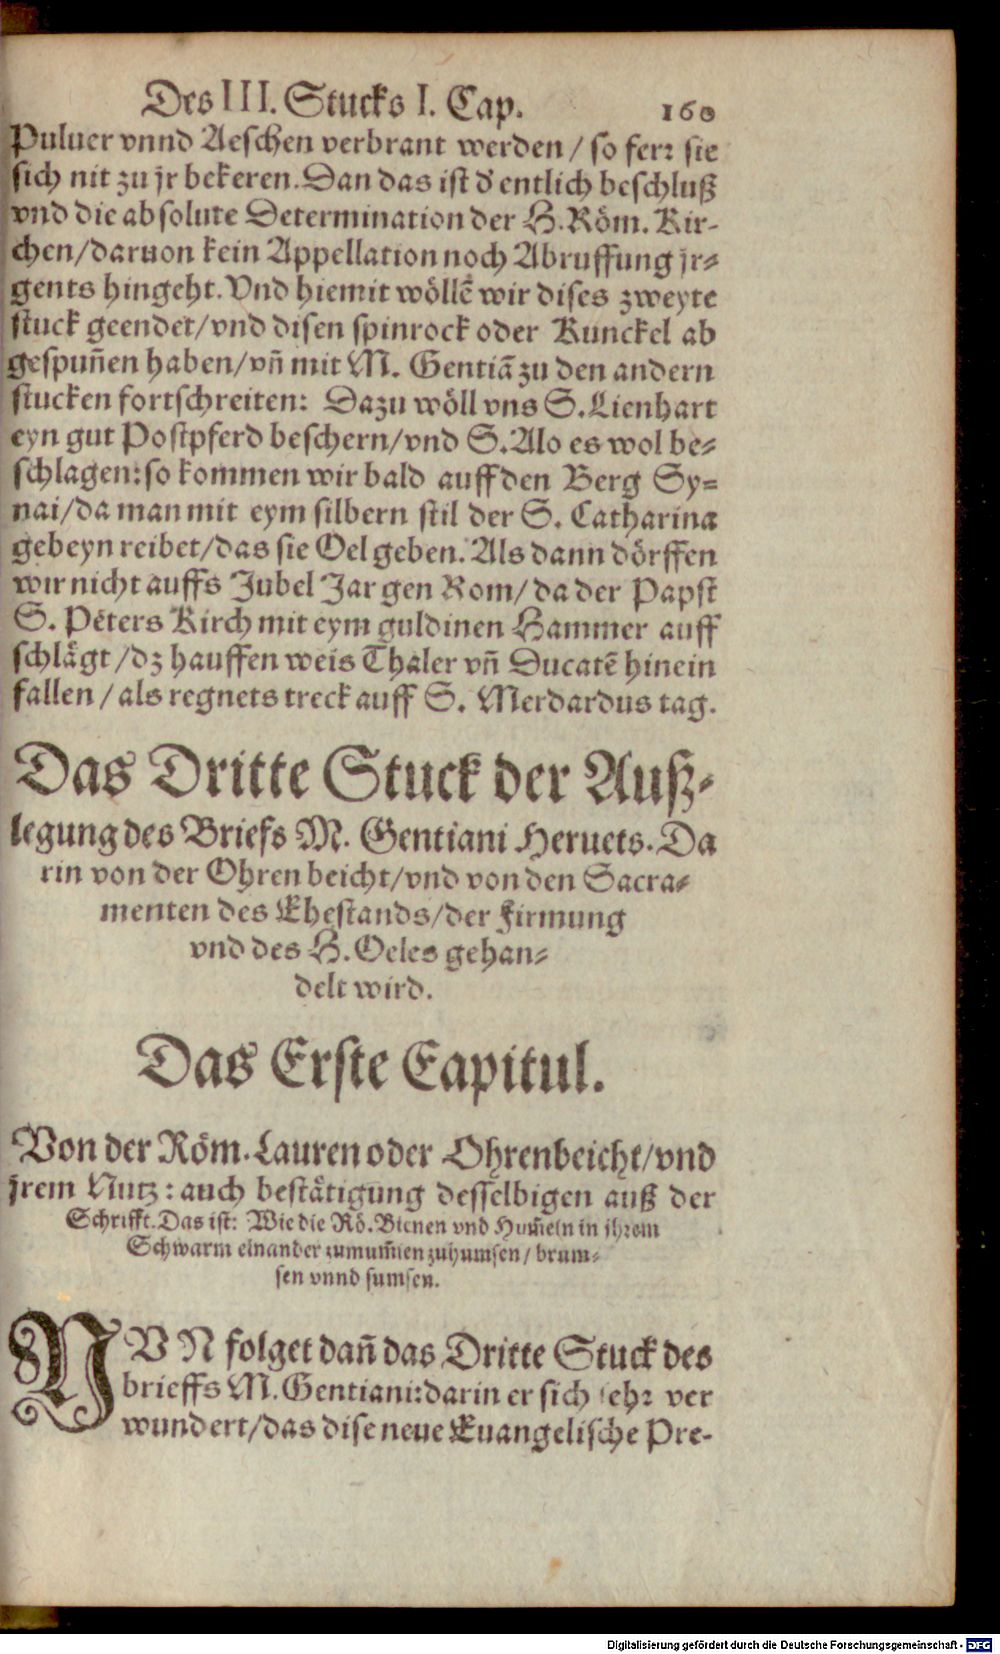 Des III. Stucks I. Cap. 160
Puluer vnnd Aeschen verbrant werden / so ferꝛ sie
sich nit zu jr bekeren. Dan das ist d' entlich beschluß
vnd die absolute Determination der H. Röm. Kir-
chen/daruon kein Appellation noch Abruffung jr-
gents hingeht. Vnd hiemit wöllẽ wir dises zweyte
stuck geendet/vnd disen spinrock oder Kunckel ab
gespuñen haben/vñ mit M. Gentiã zu den andern
stucken fortschreiten: Dazu wöll vns S. Lienhart
eyn gut Postpferd beschern/vnd S. Alo es wol be-
schlagen: so kommen wir bald auff den Berg Sy-
nai/da man mit eym silbern stil der S. Catharina
gebeyn reibet/das sie Oel geben. Als dann dörffen
wir nicht auffs Jubel Jar gen Rom/da der Papst
S. Peters Kirch mit eym guldinen Hammer auff
schlägt/dz hauffen weis Thaler vñ Ducatẽ hinein
fallen/als regnets treck auff S. Merdardus tag.
Das Dritte Stuck der Auß-
legung des Briefs M. Gentiani Heruets. Da
rin von der Ohren beicht/vnd von den Sacra-
menten des Ehestands/der Firmung
vnd des H. Oeles gehan-
delt wird.
Das Erste Capitul.
Von der Röm. Lauren oder Ohrenbeicht/vnd
jrem Nutz: auch bestätigung desselbigen auß der
Schrifft. Das ist: Wie die Rö. Bienen vnd Hum̃eln in jhrem
Schwarm einander zumum̃en zuhumsen/brum-
sen vnnd sumsen.
NVN folget dañ das Dritte Stuck des
brieffs M. Gentiani: darin er sich sehꝛ ver
wundert/das dise neue Euangelische Pre-
Digitalisierung gefördert durch die Deutsche Forschungsgemeinschaft - DFG